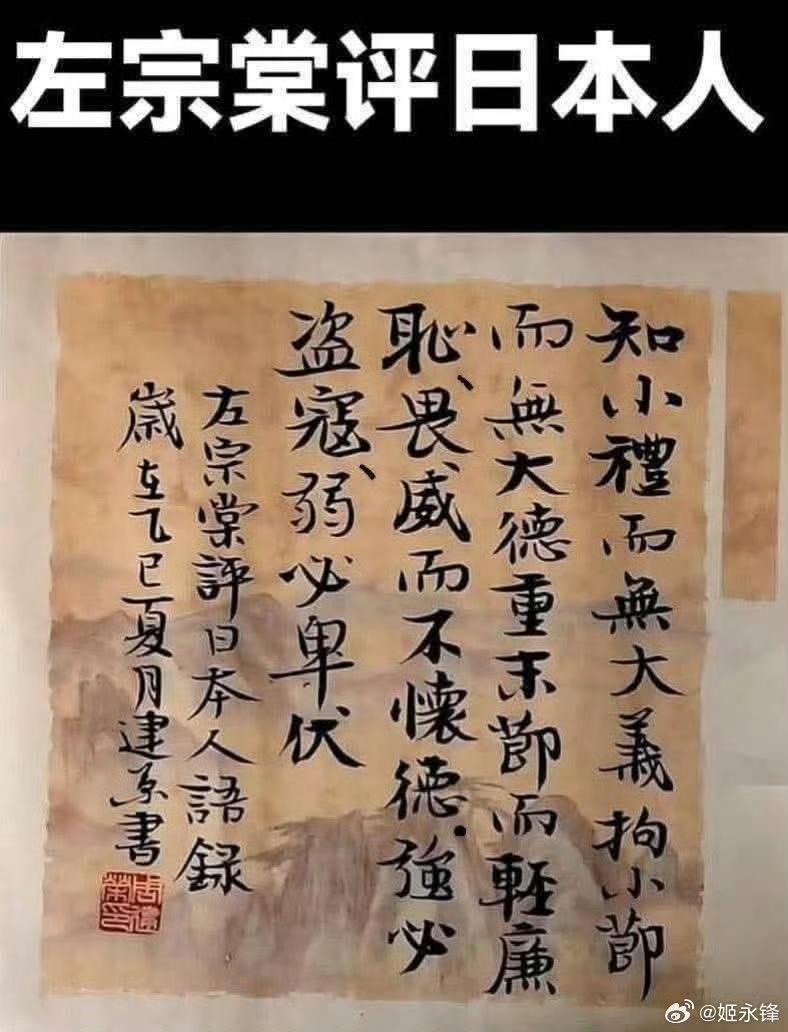 左宗棠评日本人
知小禮而無大義拘小節
而無大德重末節而輕廉
恥、畏威而不懷德.強必
盗寇、弱必卑伏
左宗棠評日本人語録
嵗在乙巳夏月建書
@姬永锋